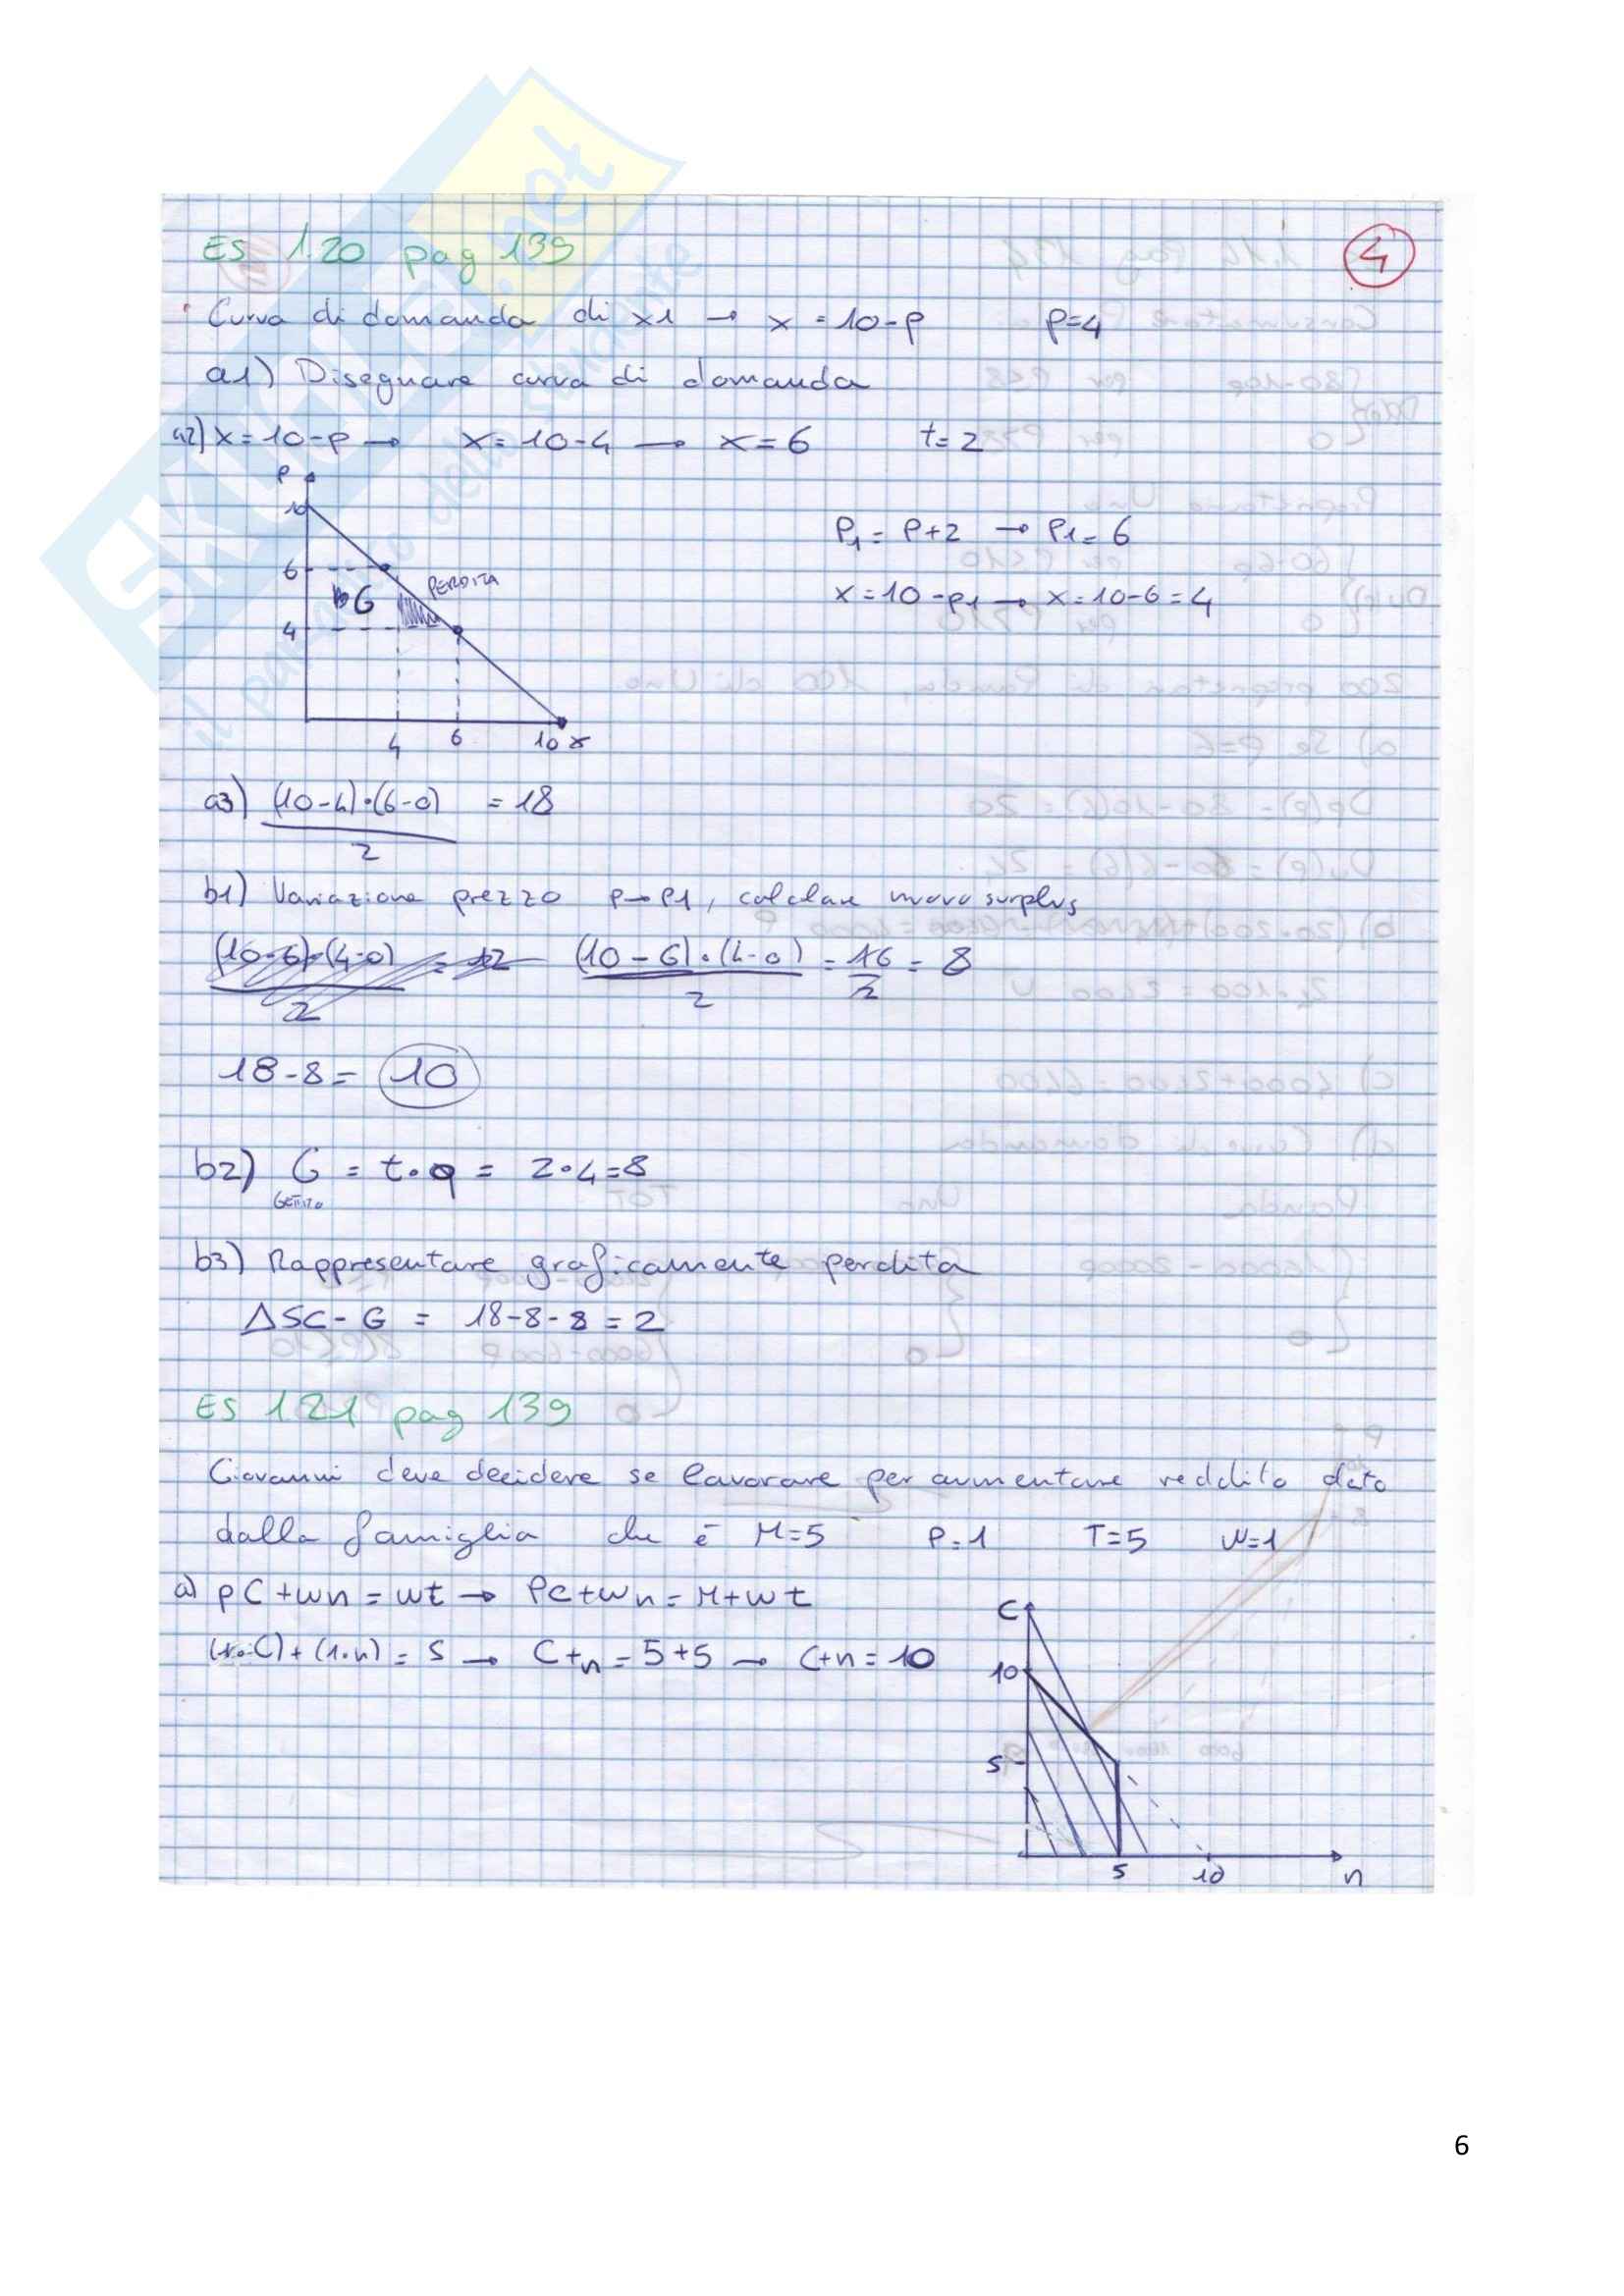 ES 1.20 pag 139
4
Curva di domanda di x1 → x = 10-p p=4
a1) Disegnare curva di domanda
a2) x=10-p → x=10-4 → x=6 t=2
P
10
6
4
G
PERDITA
4 6 10 x
P1 = P+2 → P1=6
x=10-p1 → x=10-6=4
a3) (10-4)·(6-0) = 18
2
b1) Variazione prezzo p→p1, calcolare nuovo surplus
(10-6)·(4-0) = 12 (10-6)·(4-0) = 16 = 8
2 2 2
18-8= 10
b2) G = t·q = 2·4=8
GETTITO
b3) Rappresentare graficamente perdita
ΔSC-G = 18-8-8=2
ES 1.21 pag 139
Giovanni deve decidere se lavorare per aumentare reddito dato
dalla famiglia che è M=5 P=1 T=5 W=1
a) pC+wn=wt → PC+wn=M+wt
(1·C)+(1·n)=5 → C+n=5+5 → C+n=10
C
10
5
5 10 n
6
SKUOLA.net
il paradiso dello studente